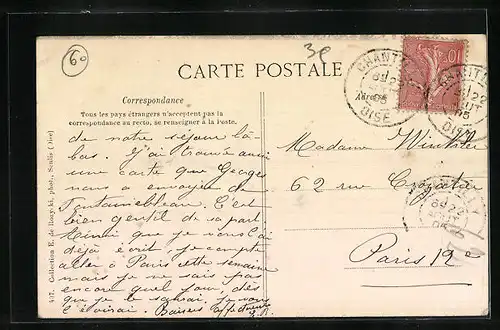 60
3f
CARTE POSTALE
Correspondance
Tous les pays étrangers n'acceptent pas la
correspondance au recto, se renseigner à la Poste.
Adresse
10
CHANTILLY
OISE
CHANTILLY
22
AOUT
05
OISE
de notre séjour là-
bas. J'ai trouvé aussi
une carte que Georges
nous a envoyée de
Fontainebleau. C'est
bien gentil de sa part
Ainsi que je vous l'ai
déjà écrit, je compte
aller à Paris cette semaine
mais je ne sais pas
encore quel jour, dès
que je le saurai, je vous
l'écrirai. Baisers affectueux
Madame Winkler
62 rue Crozatier
Paris 12e
407. Collection E. de Rozycki, phot., Senlis (Oise)